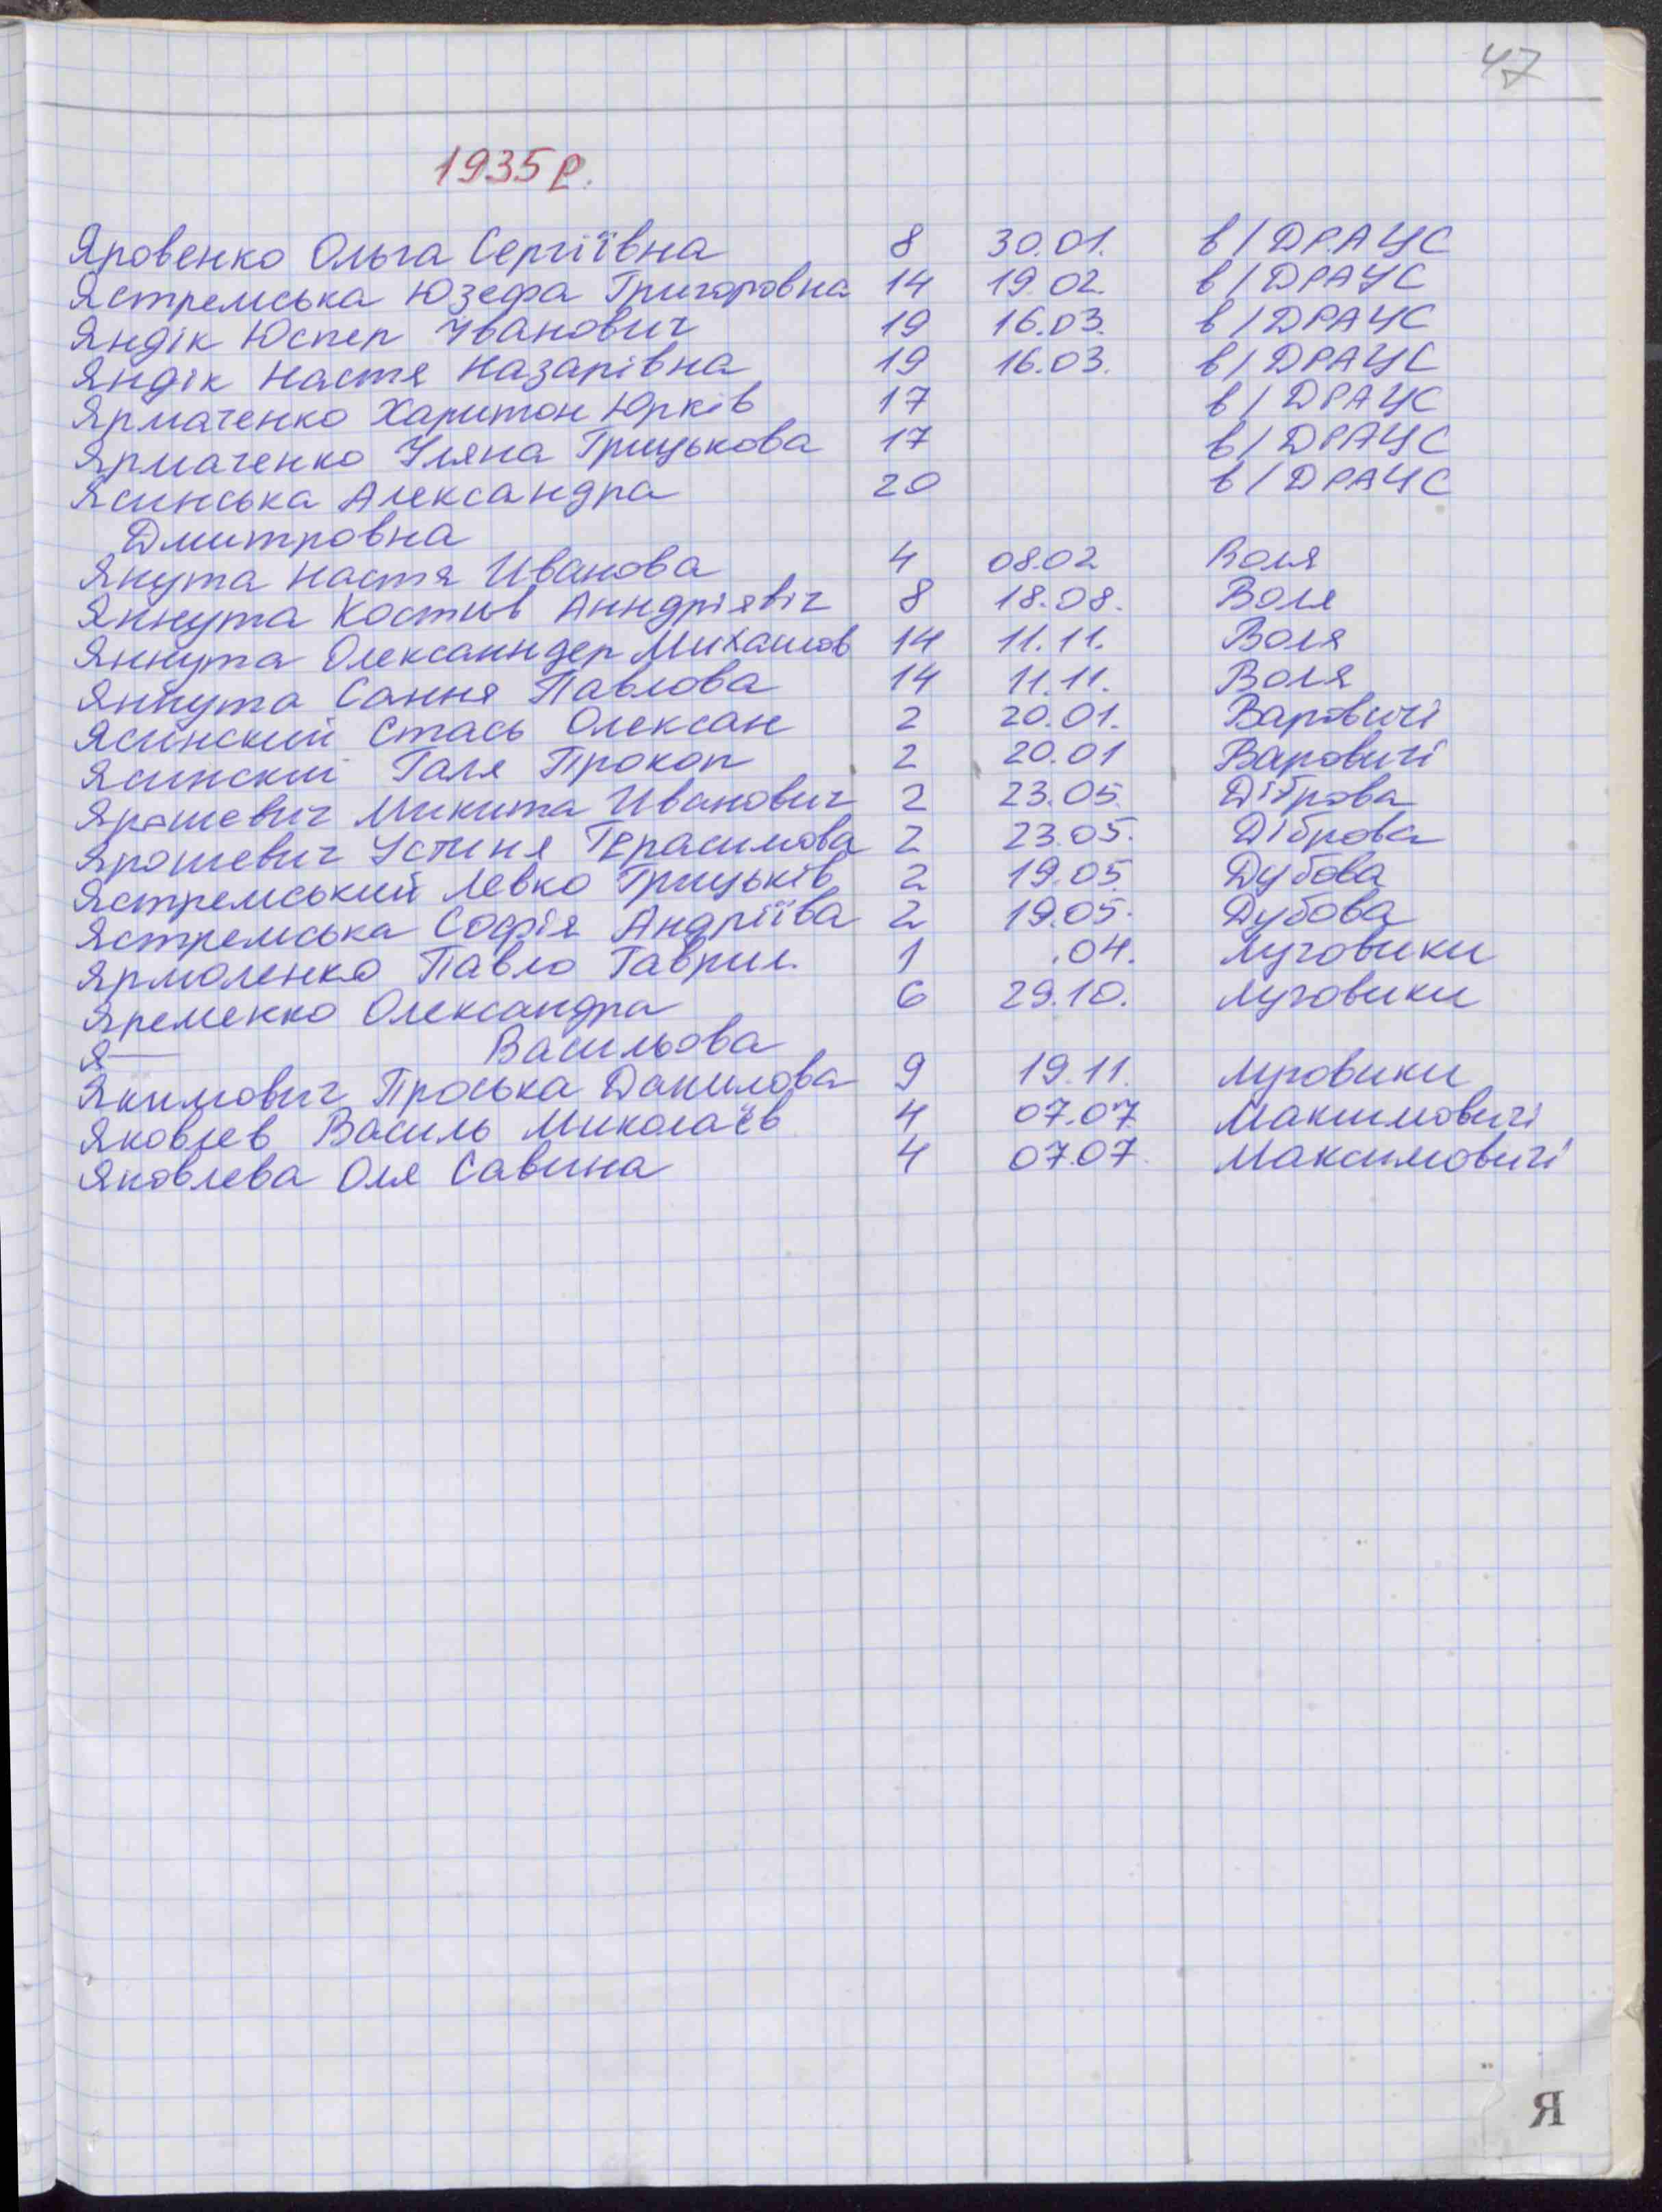 47
1935 р.
Яровенко Ольга Сергіївна 8 30.01. в/ДРАЦС
Ястремська Юзефа Григоровна 14 19.02. в/ДРАЦС
Яндік Юспер Іванович 19 16.03. в/ДРАЦС
Яндік Настя Назарівна 19 16.03. в/ДРАЦС
Ярмаченко Харитон Юрків 17 в/ДРАЦС
Ярмаченко Уляна Грицькова 17 в/ДРАЦС
Ясинська Александра 20 в/ДРАЦС
Дмитровна
Якута Настя Иванова 4 08.02 Воля
Яннута Костив Анндріявіч 8 18.08. Воля
Яннута Олександер Михаилов 14 11.11. Воля
Яннута Сання Павлова 14 11.11. Воля
Ясинский Стась Олексан 2 20.01. Варовичі
Ясинский Галя Прокоп 2 20.01 Варовичі
Ярошевич Микита Иванович 2 23.05. Діброва
Ярошевич Устиня Герасимова 2 23.05. Діброва
Ястремський Левко Грицьків 2 19.05. Дубова
Ястремська Софія Андріїва 2 19.05. Дубова
Ярмоленко Павло Гаврил. 1 .04. Луговики
Яременко Олександра 6 29.10. Луговики
Я— Васильова
Якимович Проська Данилова 9 19.11. Луговики
Яковлев Василь Миколаєв 4 07.07 Максимовичі
Яковлева Оля Савина 4 07.07. Максимовичі
Я